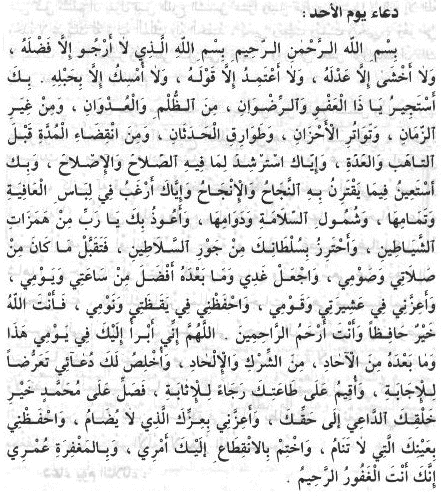 دعاء يوم الأحد :
بِسْمِ اللهِ الرَّحْمٰنِ الرَّحِيمِ بِسْمِ اللهِ الَّذِي لَا أَرْجُو إِلَّا فَضْلَهُ ،
وَلَا أَخْشَى إِلَّا عَدْلَهُ ، وَلَا أَعْتَمِدُ إِلَّا قَوْلَهُ ، وَلَا أُمْسِكُ إِلَّا بِحَبْلِهِ . بِكَ
أَسْتَجِيرُ يَا ذَا الْعَفْوِ وَالرِّضْوَانِ ، مِنَ الظُّلْمِ وَالْعُدْوَانِ ، وَمِنْ غِيَرِ
الزَّمَانِ ، وَتَوَاتُرِ الْأَحْزَانِ ، وَطَوَارِقِ الْحَدَثَانِ ، وَمِنِ انْقِضَاءِ الْمُدَّةِ قَبْلَ
التَّأَهُّبِ وَالْعُدَّةِ ، وَإِيَّاكَ اَسْتَرْشِدُ لِمَا فِيهِ الصَّلَاحُ وَالْإِصْلَاحُ ، وَبِكَ
أَسْتَعِينُ فِيمَا يَقْتَرِنُ بِهِ النَّجَاحُ وَالْإِنْجَاحُ وَإِيَّاكَ أَرْغَبُ فِي لِبَاسِ الْعَافِيَةِ
وَتَمَامِهَا ، وَشُمُولِ السَّلَامَةِ وَدَوَامِهَا ، وَأَعُوذُ بِكَ يَا رَبِّ مِنْ هَمَزَاتِ
الشَّيَاطِينِ ، وَأَحْتَرِزُ بِسُلْطَانِكَ مِنْ جَوْرِ السَّلَاطِينِ ، فَتَقَبَّلْ مَا كَانَ مِنْ
صَلَاتِي وَصَوْمِي ، وَاجْعَلْ غَدِي وَمَا بَعْدَهُ أَفْضَلَ مِنْ سَاعَتِي وَيَوْمِي ،
وَأَعِزَّنِي فِي عَشِيرَتِي وَقَوْمِي ، وَاحْفَظْنِي فِي يَقَظَتِي وَنَوْمِي ، فَأَنْتَ اللهُ
خَيْرٌ حَافِظاً وَأَنْتَ أَرْحَمُ الرَّاحِمِينَ . اللَّهُمَّ إِنِّي أَبْرَأُ إِلَيْكَ فِي يَوْمِي هَذَا
وَمَا بَعْدَهُ مِنَ الْآحَادِ ، مِنَ الشِّرْكِ وَالْإِلْحَادِ ، وَأُخْلِصُ لَكَ دُعَائِي تَعَرُّضاً
لِلْإِجَابَةِ ، وَأُقِيمُ عَلَى طَاعَتِكَ رَجَاءً لِلْإِثَابَةِ ، فَصَلِّ عَلَى مُحَمَّدٍ خَيْرِ
خَلْقِكَ الدَّاعِي إِلَى حَقِّكَ ، وَأَعِزَّنِي بِعِزِّكَ الَّذِي لَا يُضَامُ ، وَاحْفَظْنِي
بِعَيْنِكَ الَّتِي لَا تَنَامُ ، وَاخْتِمْ بِالْانْقِطَاعِ إِلَيْكَ أَمْرِي ، وَبِالْمَغْفِرَةِ عُمْرِي
إِنَّكَ أَنْتَ الْغَفُورُ الرَّحِيمُ .